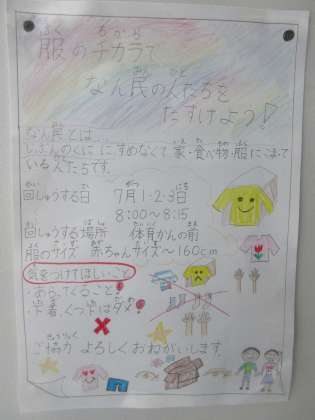 服のチカラで
なん民の人たちを
たすけよう!
なん民とは
じぶんのくににすめなくて家・食べ物・服にこまって
いる人たちです。
回しゅうする日 7月1・2・3日
8:00〜8:15
回しゅうする場所 体育かんの前
服のサイズ 赤ちゃんサイズ〜160cm
気をつけてほしいこと
・あらってくること!
・下着、くつ下はダメ!
ご協力 よろしくおねがいします。